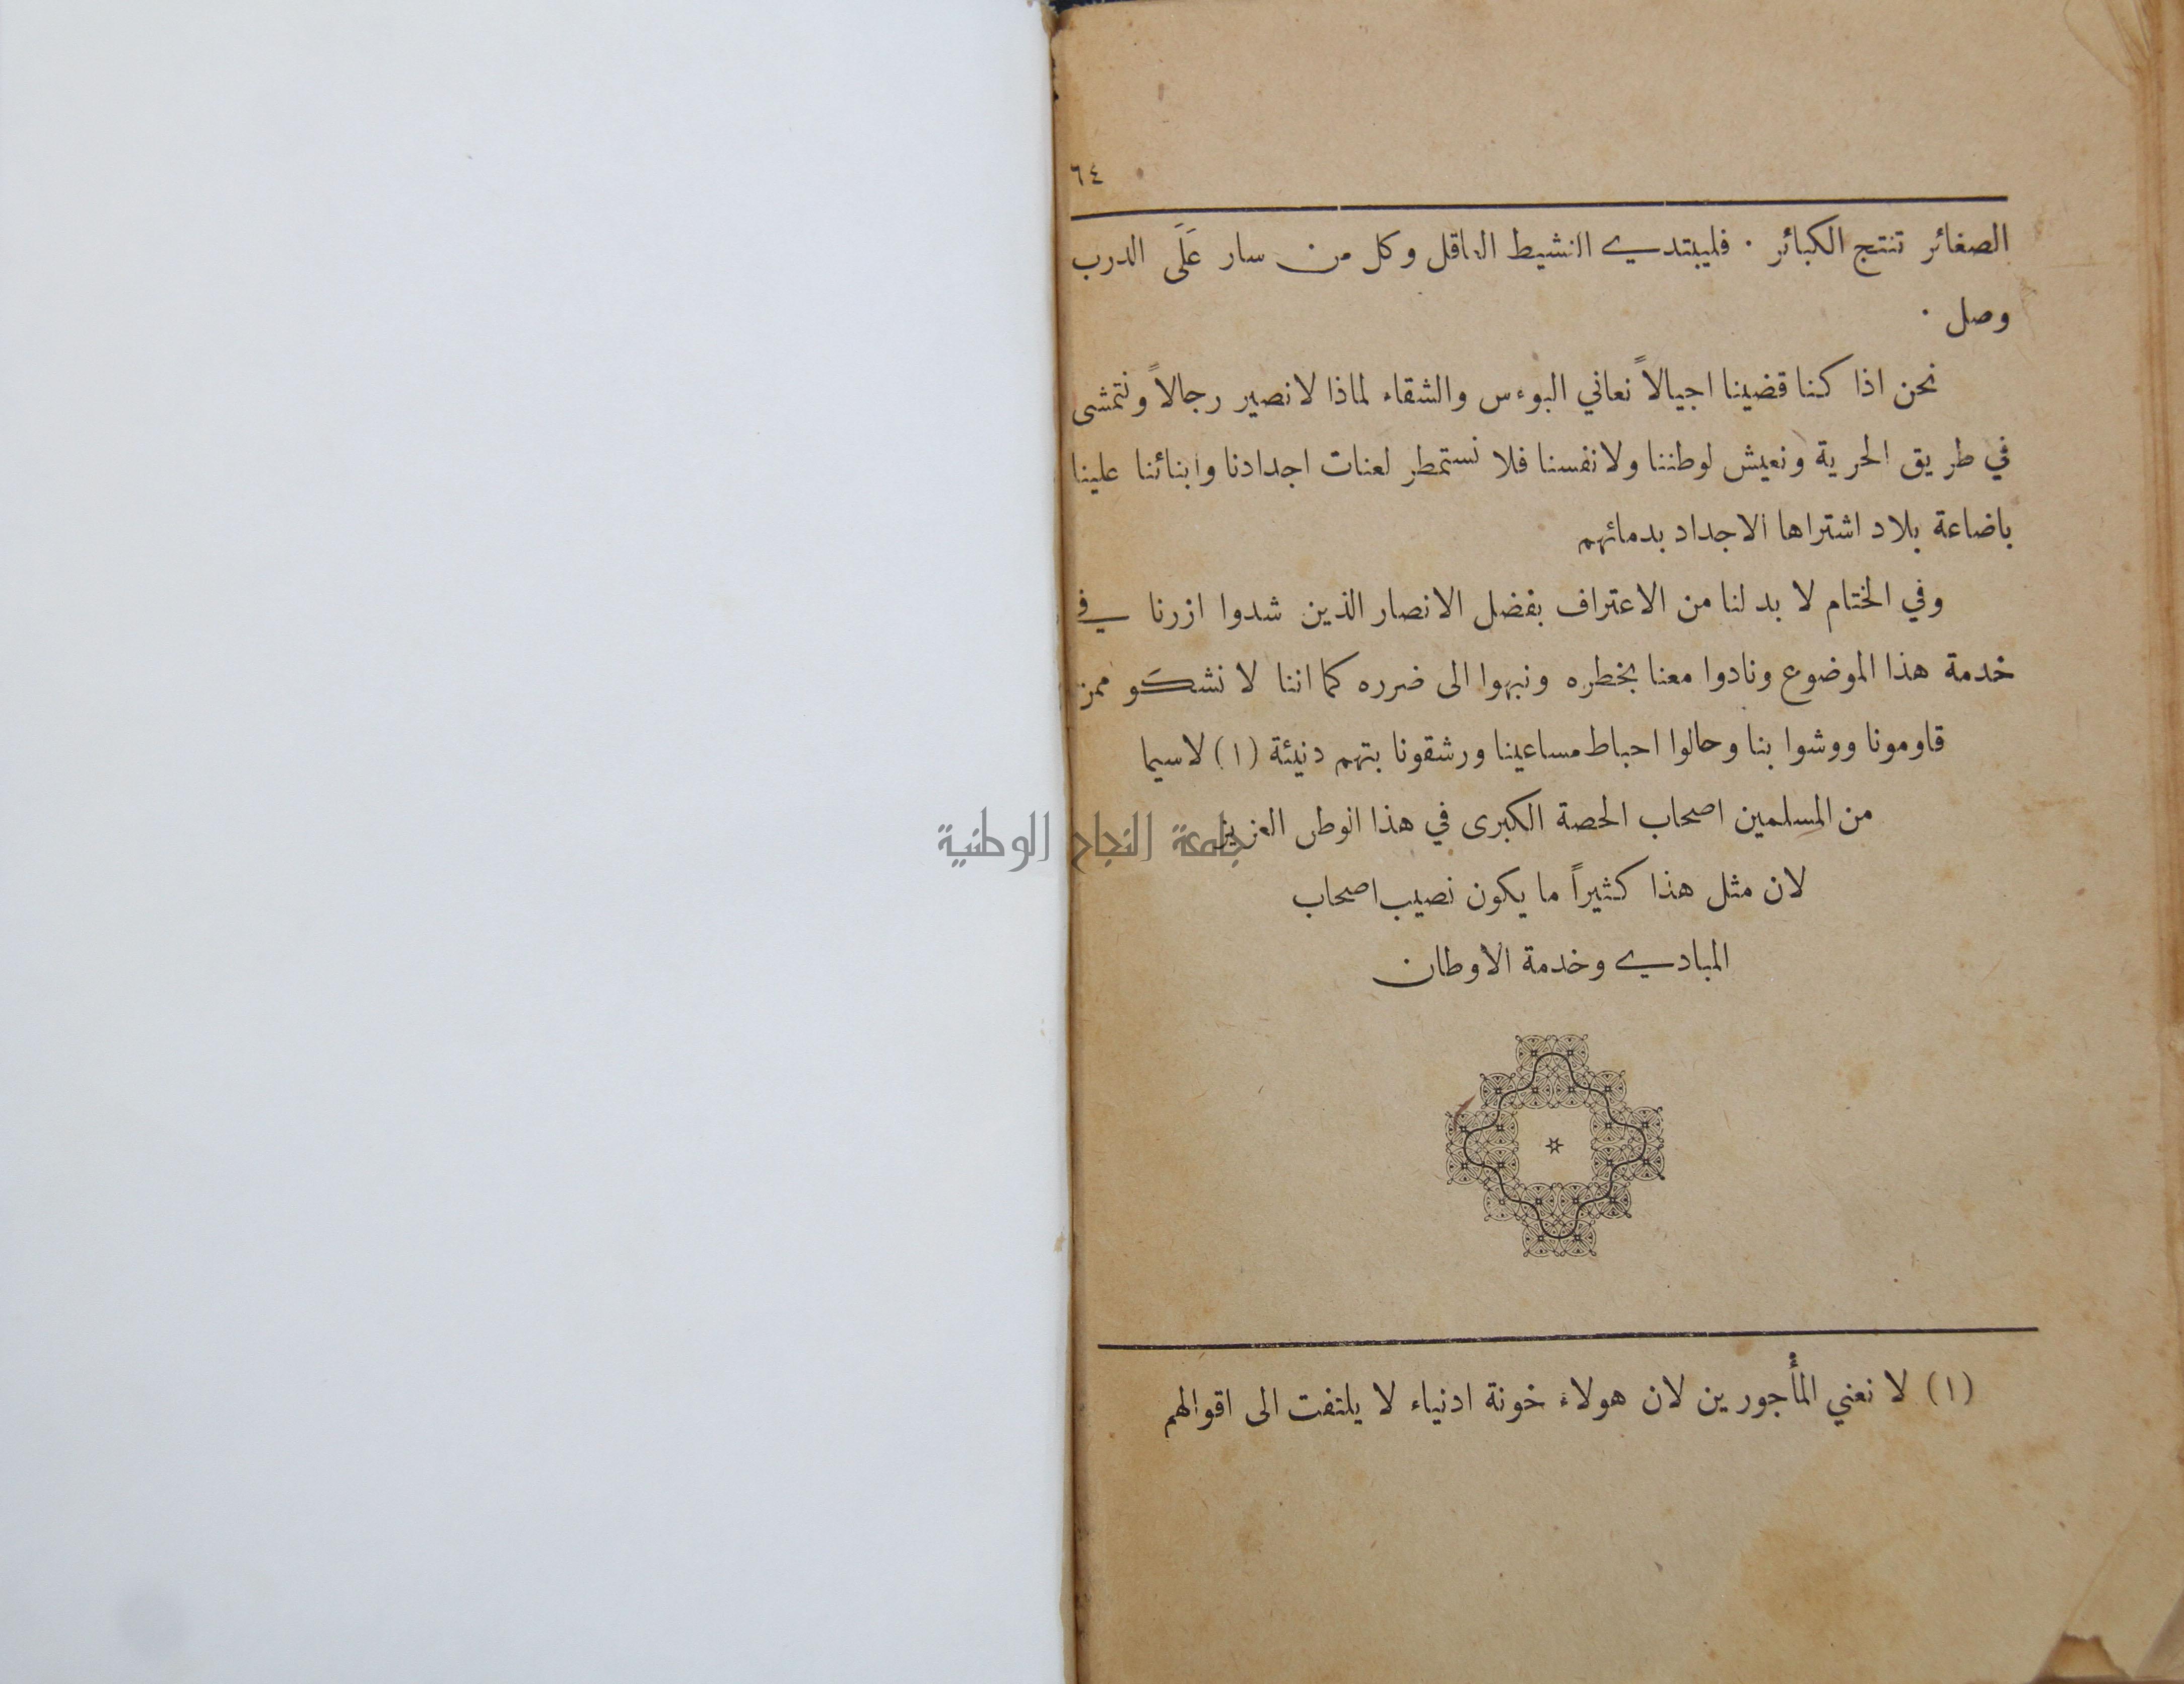 ٦٤
الصغائر تنتج الكبائر ٠ فليبتدي النشيط العاقل وكل من سار عَلَى الدرب
وصل ٠
نحن اذا كنا قضينا اجيالاً نعاني البوءس والشقاء لماذا لا نصير رجالاً ونتمشى
في طريق الحرية ونعيش لوطننا ولانفسنا فلا نستمطر لعنات اجدادنا وابنائنا علينا
باضاعة بلاد اشتراها الاجداد بدمائهم
وفي الختام لا بد لنا من الاعتراف بفضل الانصار الذين شدوا ازرنا في
خدمة هذا الموضوع ونادوا معنا بخطره ونبهوا الى ضرره كما اننا لا نشكو ممن
قاومونا ووشوا بنا وحالوا احباط مساعينا ورشقونا بتهم دنيئة (١) لاسيما
من المسلمين اصحاب الحصة الكبرى في هذا الوطن العزيز
جامعة النجاح الوطنية
لان مثل هذا كثيراً ما يكون نصيب اصحاب
المبادي وخدمة الاوطان
(١) لا نعني المأجورين لان هولاء خونة ادنياء لا يلتفت الى اقوالهم